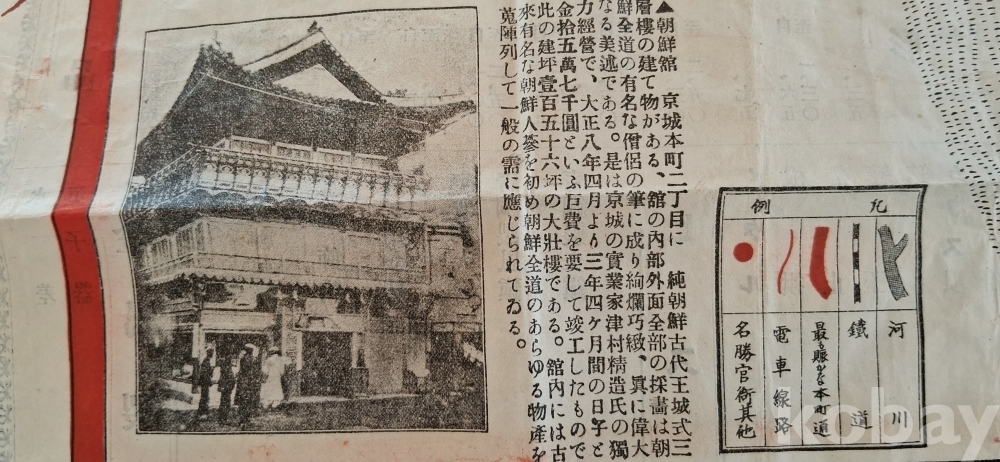 ▲朝鮮舘　京城本町二丁目に　純朝鮮古代王城式三
層樓の建て物がある、舘の内部外面全部の採畵は朝
鮮全道の有名な僧侶の筆に成り絢爛巧緻、眞に偉大
なる美述である。是は京城の實業家津村精造氏の獨
力經營で、大正八年四月より三年四ヶ月間の日子と
金拾五萬七千圓といふ巨費を要して竣工したもので
此の建坪壹百五十六坪の大壯樓である。舘内には古
來有名な朝鮮人蔘を初め朝鮮全道のあらゆる物産を
蒐陣列して一般の需に應じられてゐる。
凡例
河川
鐵道
最も賑かな本町道
電車線路
名勝官衙其他
kobay